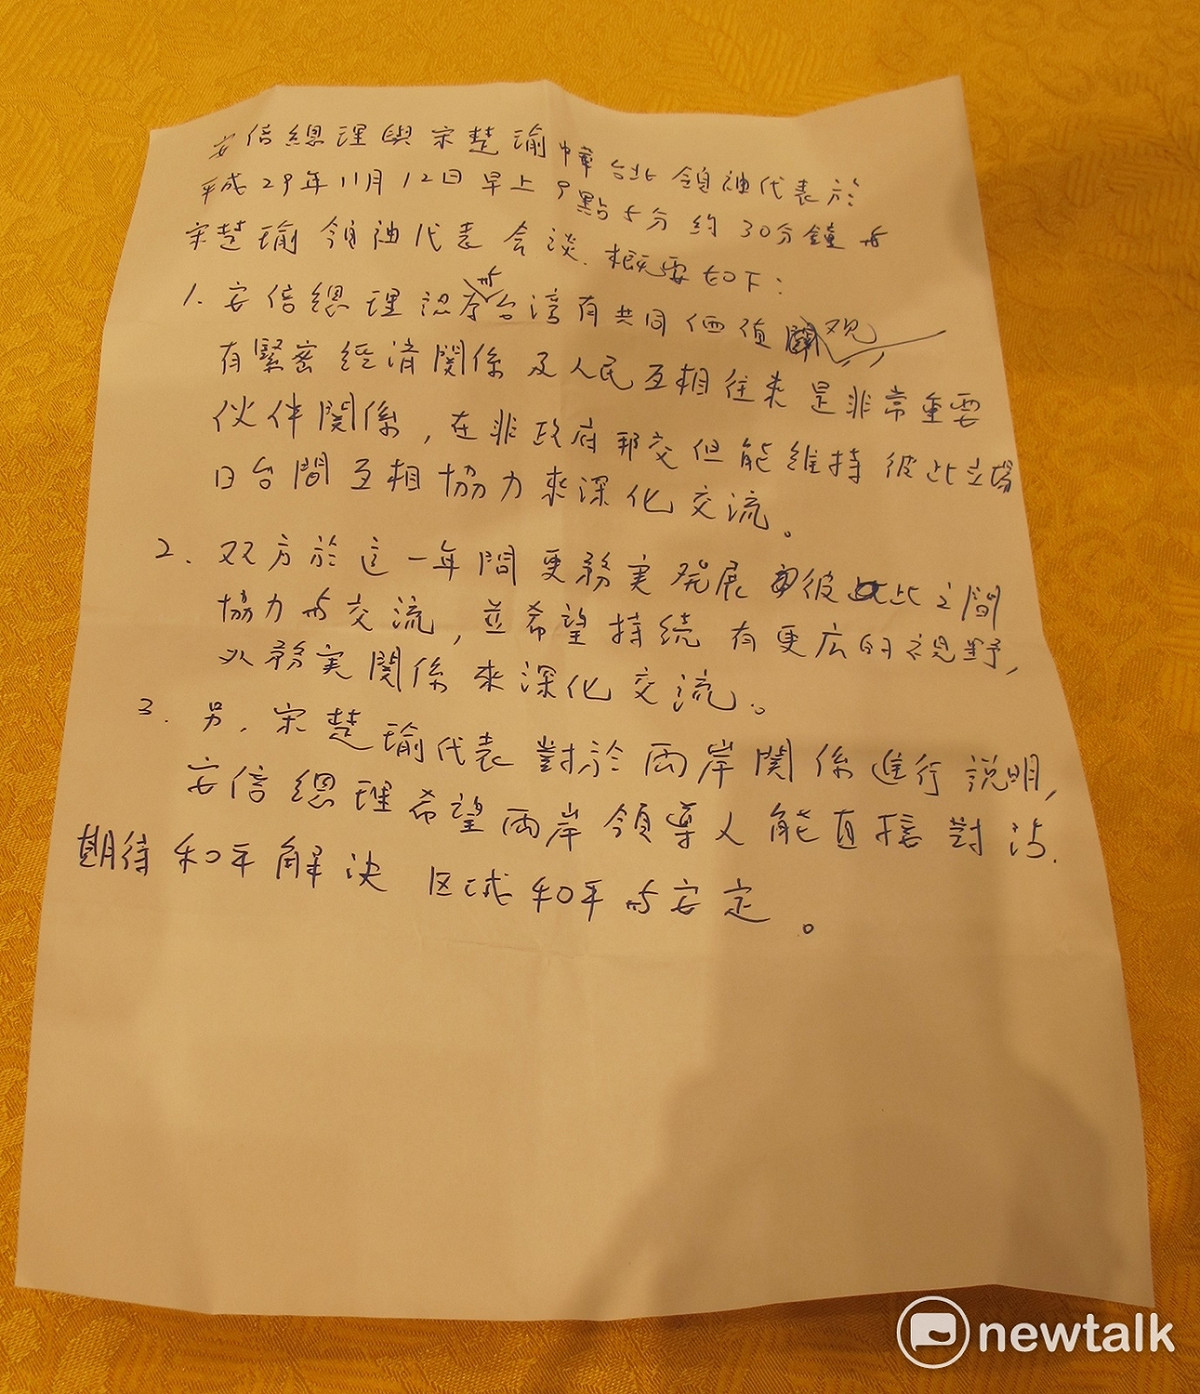 安倍總理與宋楚瑜中華台北領袖代表於
平成29年11月12日早上9點5分約30分鐘与
宋楚瑜領袖代表会談.概要如下:
1.安倍總理認為与台湾有共同価值観
有緊密経済関係及人民互相往来是非常重要
伙伴関係,在非政府邦交但能維持彼此立場
日台間互相協力來深化交流。
2.双方於這一年間更務実発展彼此之間
協力与交流,並希望持続有更広的視野,
以務実関係來深化交流。
3.另,宋楚瑜代表對於両岸関係進行説明,
安倍總理希望両岸領導人能直接對话.
期待和平解決区域和平与安定。
newtalk